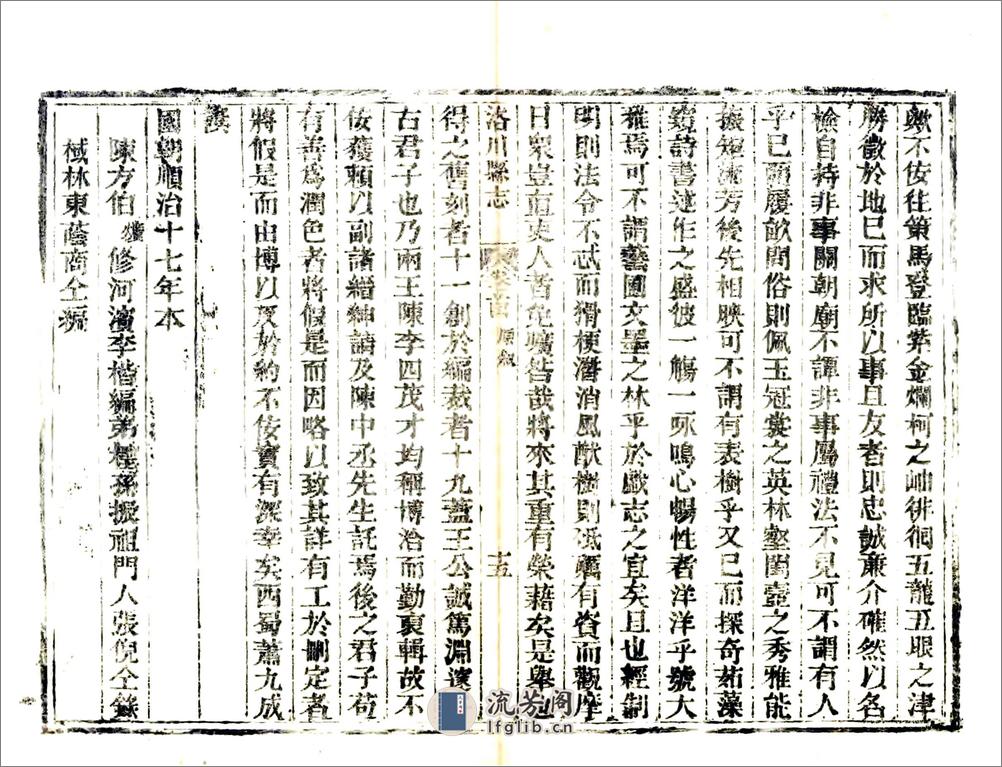 歟不佞往策馬登臨紫金爛柯之岫徘徊五龍五眼之津
勝徵於地已而求所以事且友者則忠誠亷介確然以名
檢自持非事關朝廟不譚非事屬禮法不見可不謂有人
乎已而履畝問俗則佩玉冠裳之英林壑閨壼之秀雅能
振短流芳後先相映可不謂有表樹乎又已而探奇拓藻
鏡詩書述作之盛彼一觴一咏鳴心暢性者洋洋乎號大
雅焉可不謂藝圃文墨之林乎於戲志之宜矣且也經制
明則法令不忒而猾梗潛消風猷樹則砥礪有資而觀摩
日衆豈直吏人者免曠咎哉將來其重有榮藉矣是舉也
洛川縣志 卷首 原叙 十五
得之舊刻者十一創於編裁者十九蓋王公誠篤淵邃
右君子也乃兩王陳李四茂才均稱博洽而勤裒輯故不
佞獲賴以副諸縉紳請及陳中丞先生託焉後之君子苟
有善爲潤色者將假是而因略以致其詳有工於刪定者
將假是而由博以反於約不佞實有深幸矣西蜀蕭九成
譔
國朝順治十七年本
陳方伯 修河濱李楷編弟 孫振祖門人張倪仝錄
棫林東蔭商仝編
流芳阁
lfglib.cn